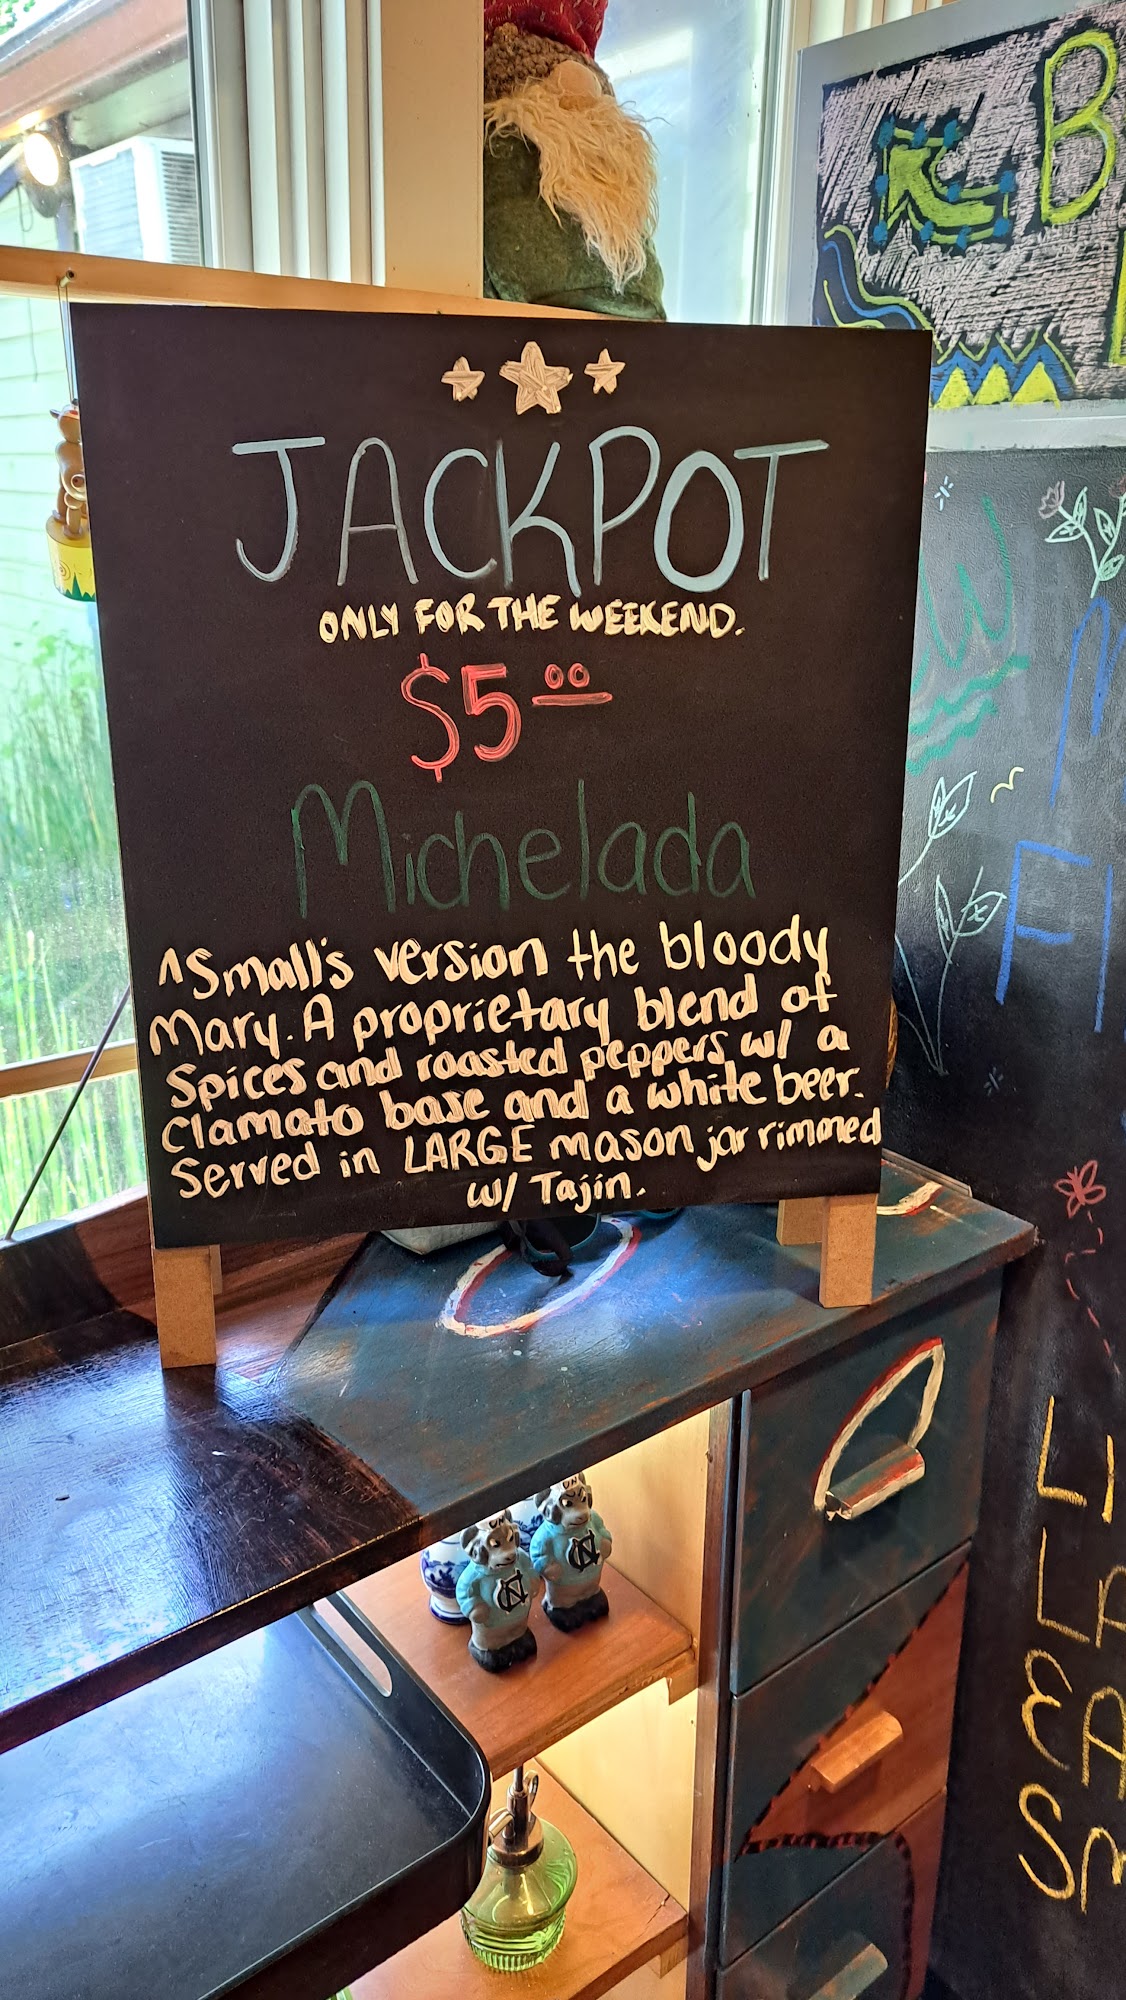 JACKPOT
ONLY FOR THE WEEKEND.
$5.00
Michelada
^Small's version the bloody
Mary. A proprietary blend of
Spices and roasted peppers w/ a
Clamato base and a white beer.
Served in LARGE mason jar rimmed
w/ Tajín.
B
NC
NC